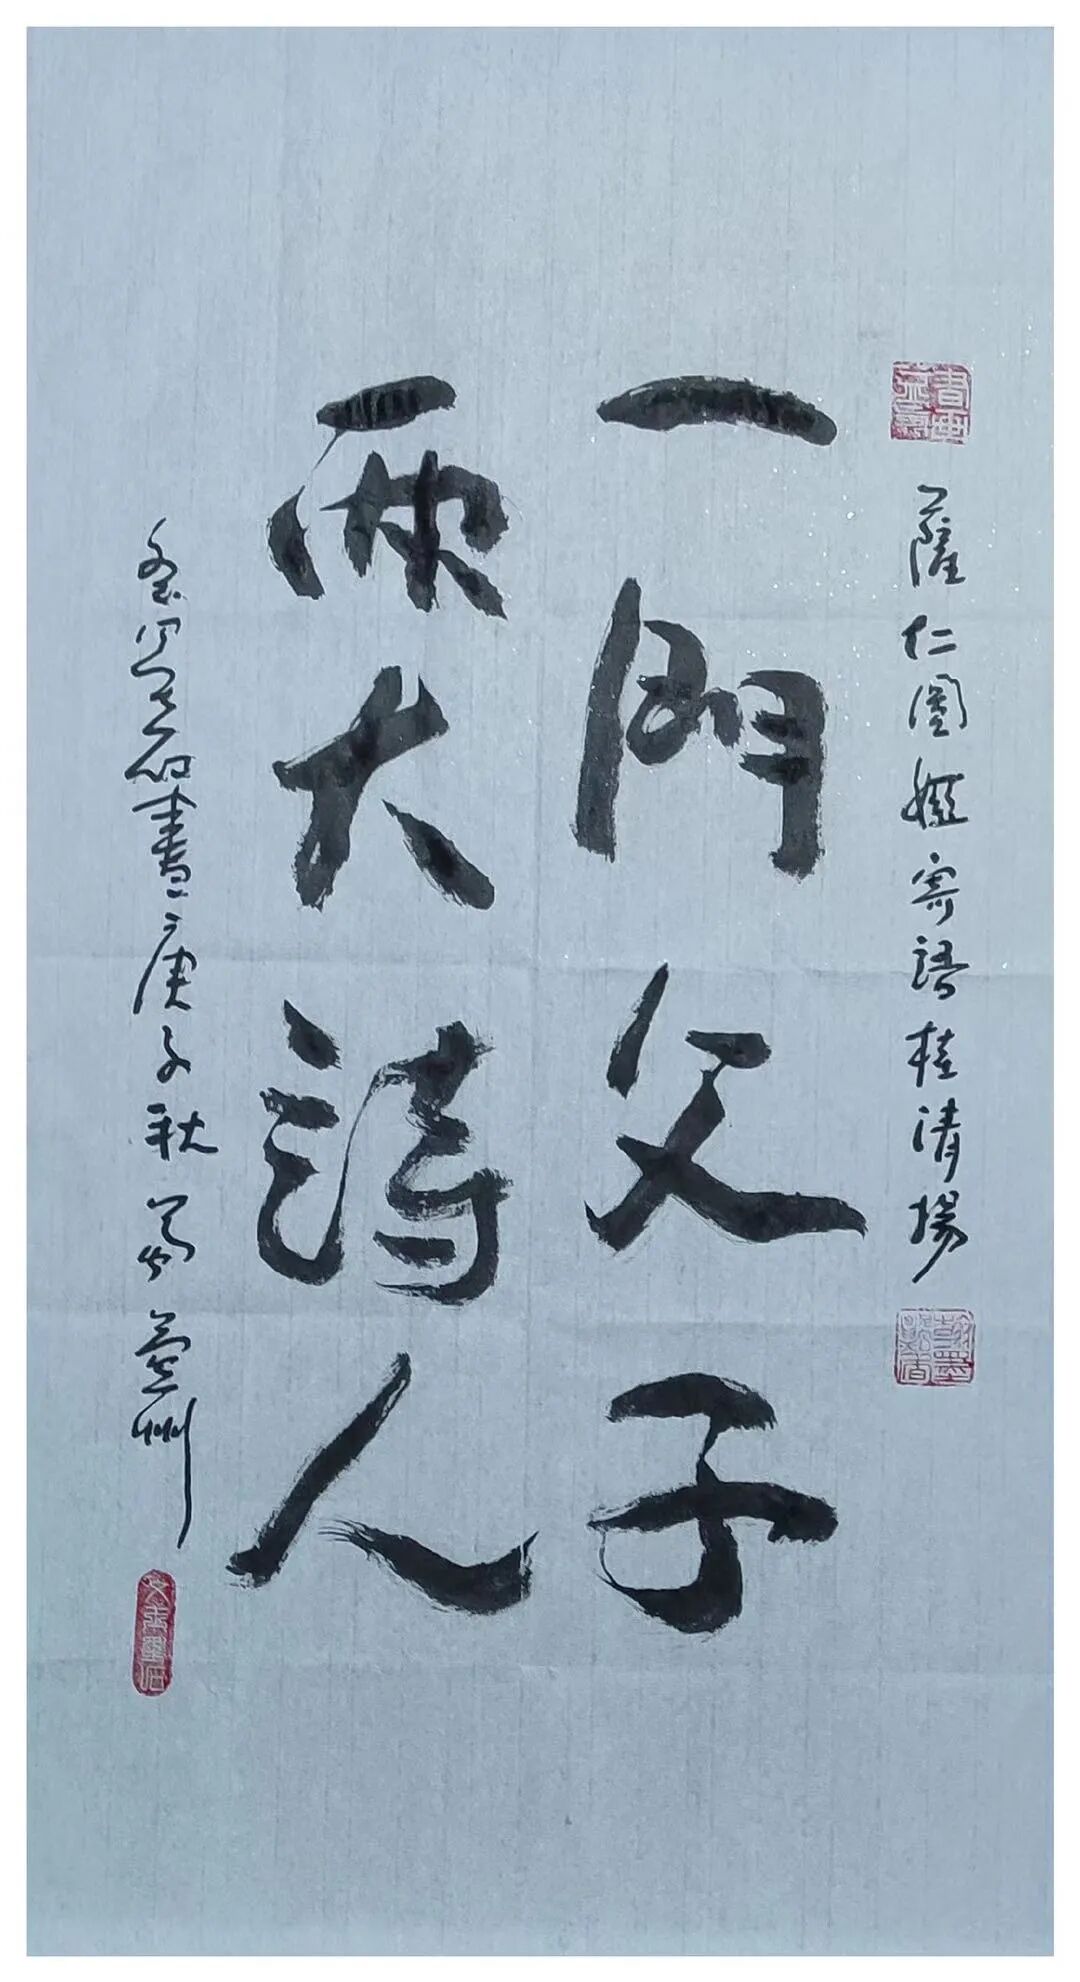 薩仁圖婭寄語桂清揚
一門父子
兩大詩人
書庚子秋於蘭州